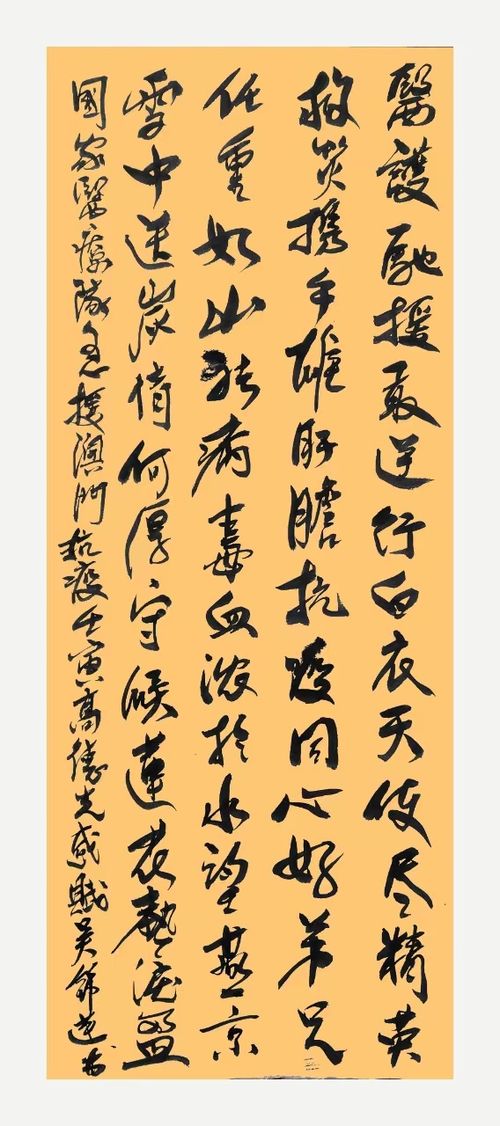 醫護馳援最逆行白衣天使尽精英
救災携手雄肝膽抗疫同心好弟兄
任重如山病毒血浓於水望燕京
雪中送炭情何厚守候蓮花熱淚盈
國家醫療隊急援澳門抗疫壬寅高先感賦吴錦蓮书